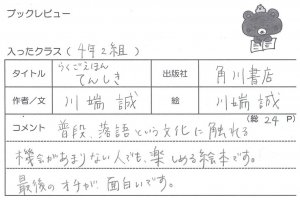 ブックレビュー
入ったクラス（4年2組）
タイトル らくごえほん てんしき 出版社 角川書店
作者/文 川端誠 絵 川端誠
（総24P）
コメント 普段、落語という文化に触れる
機会があまりない人でも、楽しめる絵本です。
最後のオチが面白いです。